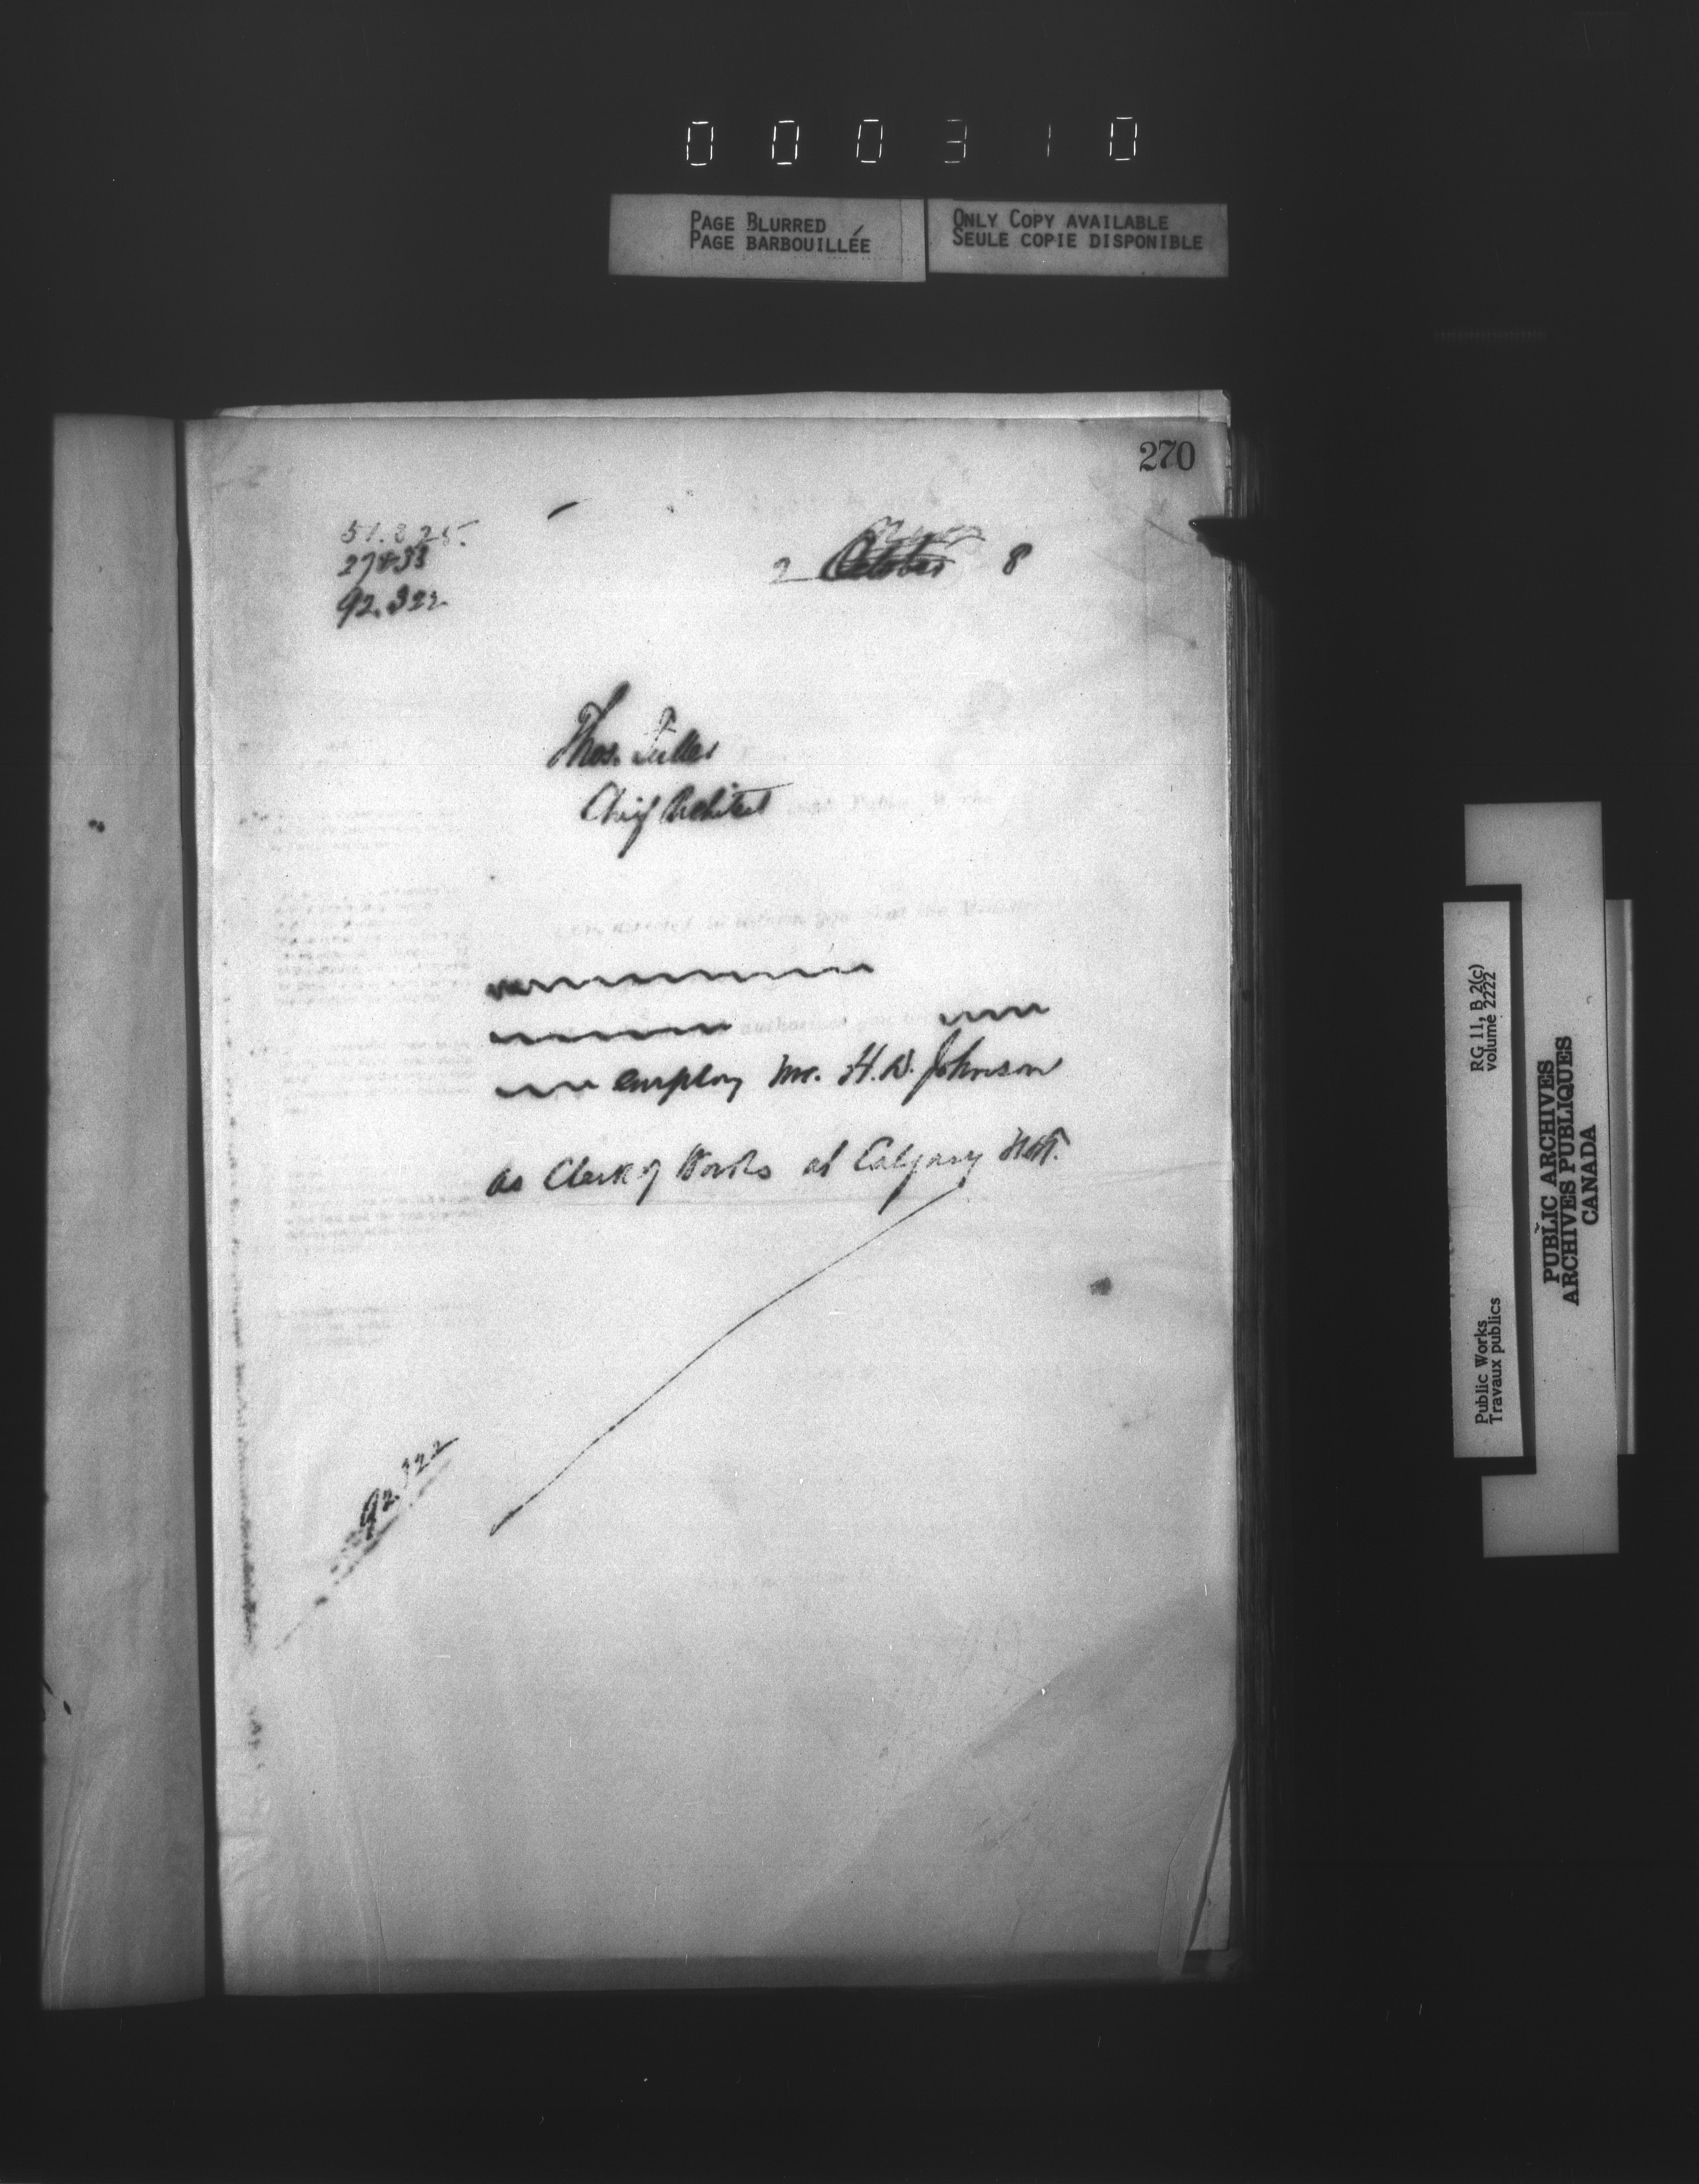 000310
PAGE BLURRED
PAGE BARBOUILLÉE
ONLY COPY AVAILABLE
SEULE COPIE DISPONIBLE
270
51.825.
27833
92.322
2 October 8
Thos. Fuller
Chief Architect
employ Mr. H.D. Johnson
as Clerk of Works at Calgary N.W.T.
92.322
RG 11, B 2(c)
volume 2222
Public Works
Travaux publics
PUBLIC ARCHIVES
ARCHIVES PUBLIQUES
CANADA